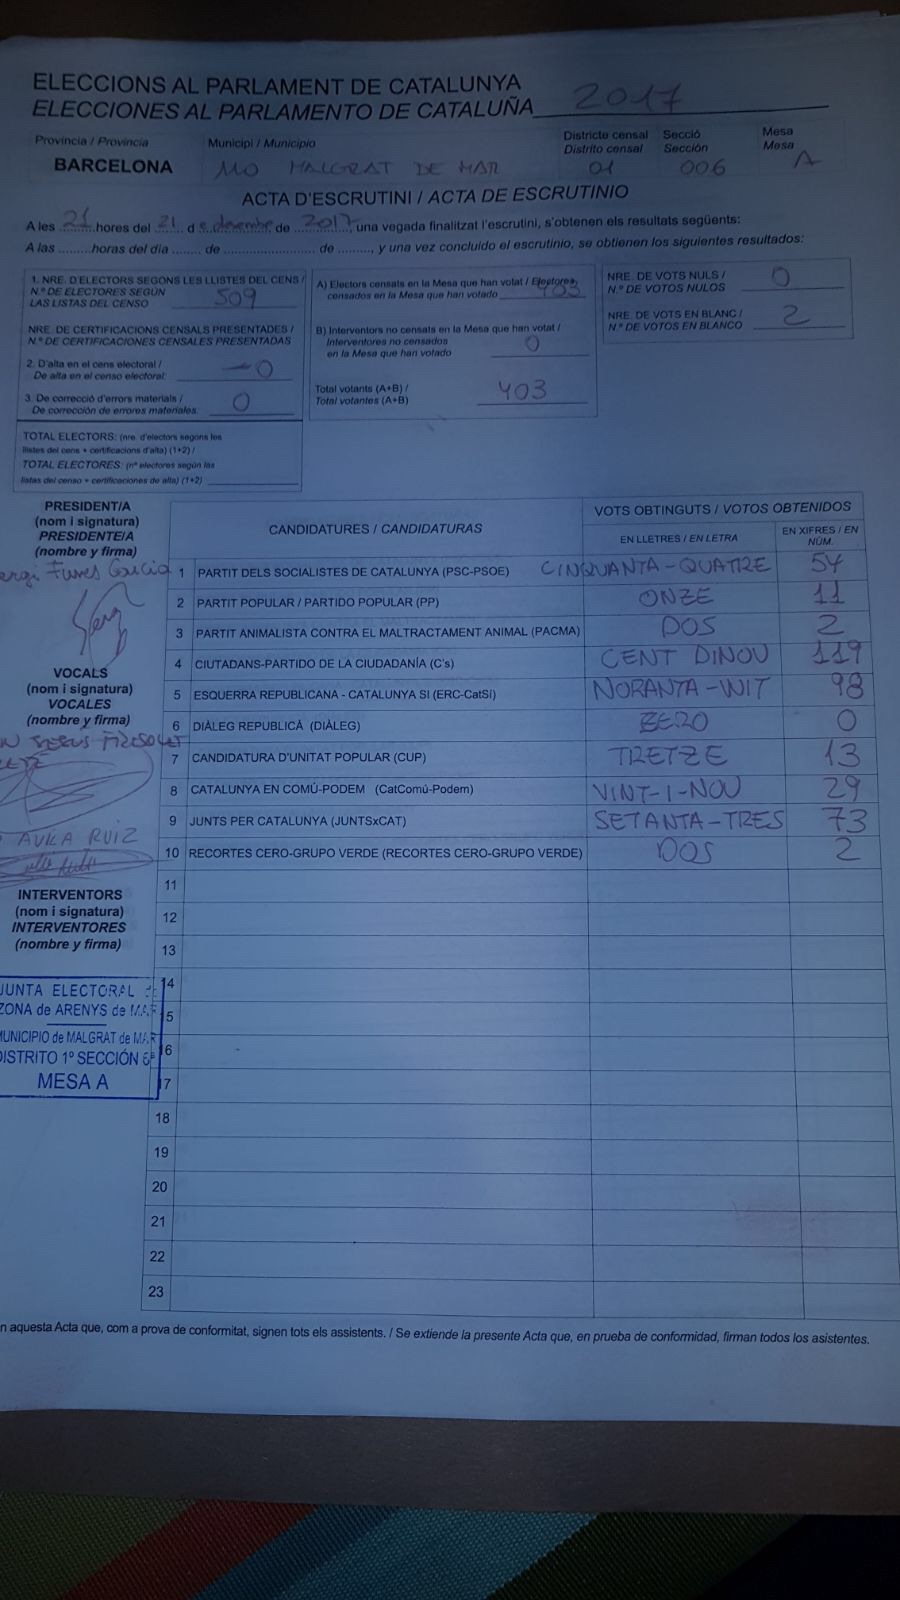 ELECCIONS AL PARLAMENT DE CATALUNYA
ELECCIONES AL PARLAMENTO DE CATALUÑA 2017
Provincia / Provincia Municipi / Municipio Districte censal Secció Mesa
Distrito censal Sección Mesa
BARCELONA 110 MALGRAT DE MAR 01 006 A
ACTA D'ESCRUTINI / ACTA DE ESCRUTINIO
A les 21 hores del 21 d e desembre de 2017, una vegada finalitzat l'escrutini, s'obtenen els resultats següents:
A las .........horas del día ....... de ........................ de ........., y una vez concluido el escrutinio, se obtienen los siguientes resultados:
1. NRE. D'ELECTORS SEGONS LES LLISTES DEL CENS /
N.º DE ELECTORES SEGÚN
LAS LISTAS DEL CENSO 509
NRE. DE CERTIFICACIONS CENSALS PRESENTADES /
N.º DE CERTIFICACIONES CENSALES PRESENTADAS
2. D'alta en el cens electoral /
De alta en el censo electoral: 0
3. De correcció d'errors materials /
De corrección de errores materiales: 0
TOTAL ELECTORS: (nre. d'electors segons les
llistes del cens + certificacions d'alta) (1+2) /
TOTAL ELECTORES: (nº electores según las
listas del censo + certificaciones de alta) (1+2)
A) Electors censats en la Mesa que han votat / Electores
censados en la Mesa que han votado 403
B) Interventors no censats en la Mesa que han votat /
Interventores no censados
en la Mesa que han votado 0
Total votants (A+B) /
Total votantes (A+B) 403
NRE. DE VOTS NULS /
N.º DE VOTOS NULOS 0
NRE. DE VOTS EN BLANC /
N.º DE VOTOS EN BLANCO 2
PRESIDENT/A
(nom i signatura)
PRESIDENTE/A
(nombre y firma)
Funes García
VOCALS
(nom i signatura)
VOCALES
(nombre y firma)
AVILA RUIZ
INTERVENTORS
(nom i signatura)
INTERVENTORES
(nombre y firma)
JUNTA ELECTORAL
ZONA de ARENYS de MAR
MUNICIPIO de MALGRAT de MAR
DISTRITO 1º SECCIÓN 6ª
MESA A
CANDIDATURES / CANDIDATURAS VOTS OBTINGUTS / VOTOS OBTENIDOS
EN LLETRES / EN LETRA EN XIFRES / EN NÚM.
1 PARTIT DELS SOCIALISTES DE CATALUNYA (PSC-PSOE) CINQUANTA-QUATRE 54
2 PARTIT POPULAR / PARTIDO POPULAR (PP) ONZE 11
3 PARTIT ANIMALISTA CONTRA EL MALTRACTAMENT ANIMAL (PACMA) DOS 2
4 CIUTADANS-PARTIDO DE LA CIUDADANÍA (C's) CENT DINOU 119
5 ESQUERRA REPUBLICANA - CATALUNYA SI (ERC-CatSí) NORANTA-VUIT 98
6 DIÀLEG REPUBLICÀ (DIÀLEG) ZERO 0
7 CANDIDATURA D'UNITAT POPULAR (CUP) TRETZE 13
8 CATALUNYA EN COMÚ-PODEM (CatComú-Podem) VINT-I-NOU 29
9 JUNTS PER CATALUNYA (JUNTSxCAT) SETANTA-TRES 73
10 RECORTES CERO-GRUPO VERDE (RECORTES CERO-GRUPO VERDE) DOS 2
11
12
13
14
15
16
17
18
19
20
21
22
23
n aquesta Acta que, com a prova de conformitat, signen tots els assistents. / Se extiende la presente Acta que, en prueba de conformidad, firman todos los asistentes.